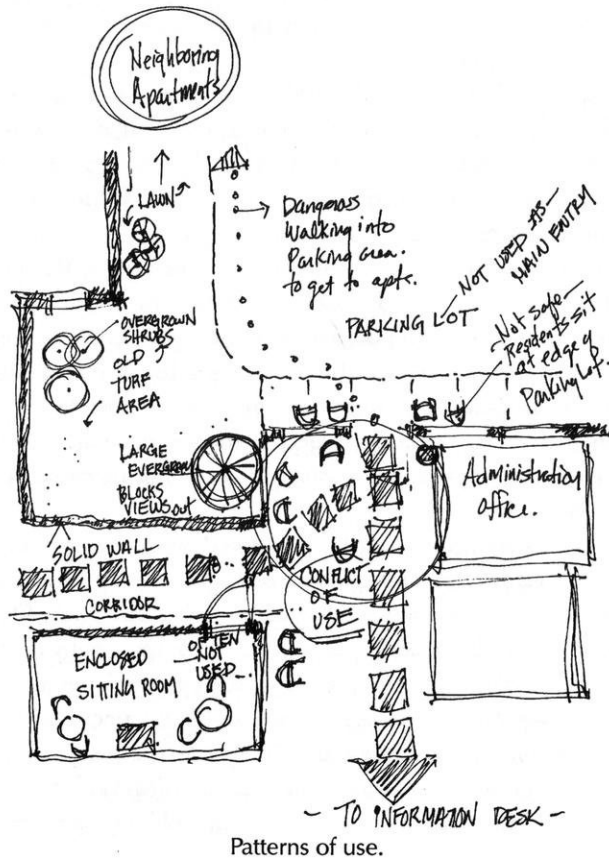 Neighboring
Apartments
LAWN
Dangerous
Walking into
Parking area.
to get to apts.
NOT USED AS
MAIN ENTRY
PARKING LOT
Not safe
Residents sit
at edge of
Parking Lot.
OVERGROWN
SHRUBS
OLD
TURF
AREA
LARGE
EVERGREEN
BLOCKS
VIEWS OUT
Administration
Office.
SOLID WALL
CORRIDOR
CONFLICT
OF
USE
ENCLOSED
SITTING ROOM
OFTEN
NOT
USED
- TO INFORMATION DESK -
Patterns of use.